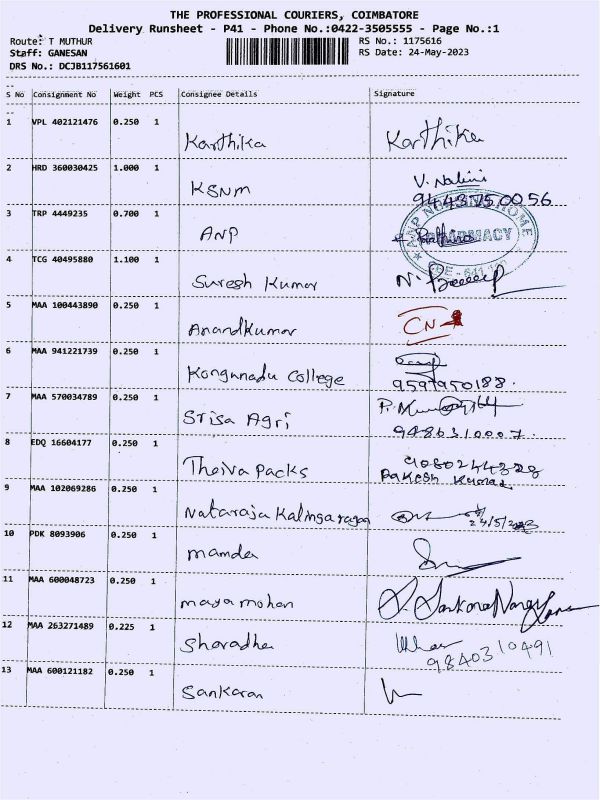 THE PROFESSIONAL COURIERS, COIMBATORE
Delivery Runsheet - P41 - Phone No.:0422-3505555 - Page No.:1
Route: T MUTHUR RS No.: 1175616
Staff: GANESAN RS Date: 24-May-2023
DRS No.: DCJB117561601
S No Consignment No Weight PCS Consignee Details Signature
1 VPL 402121476 0.250 1 Karthika Karthika
2 HRD 360030425 1.000 1 KSNM V. Nalini
9443750056
3 TRP 4449235 0.700 1 ANP
PHARMACY
4 TCG 40495880 1.100 1 Suresh Kumar
5 MAA 100443890 0.250 1 Anandkumar CN
6 MAA 941221739 0.250 1 Kongunadu College
9597950188.
7 MAA 570034789 0.250 1 Srisa Agri
9486310007.
8 EDQ 16604177 0.250 1 Theiva Packs
Rakesh Kumar
9 MAA 102069286 0.250 1 Nataraja
24/5/2023
10 PDK 8093906 0.250 1 mamda
11 MAA 600048723 0.250 1 maya mohan
12 MAA 263271489 0.225 1 Sharadha
9840310491
13 MAA 600121182 0.250 1 Sankaran